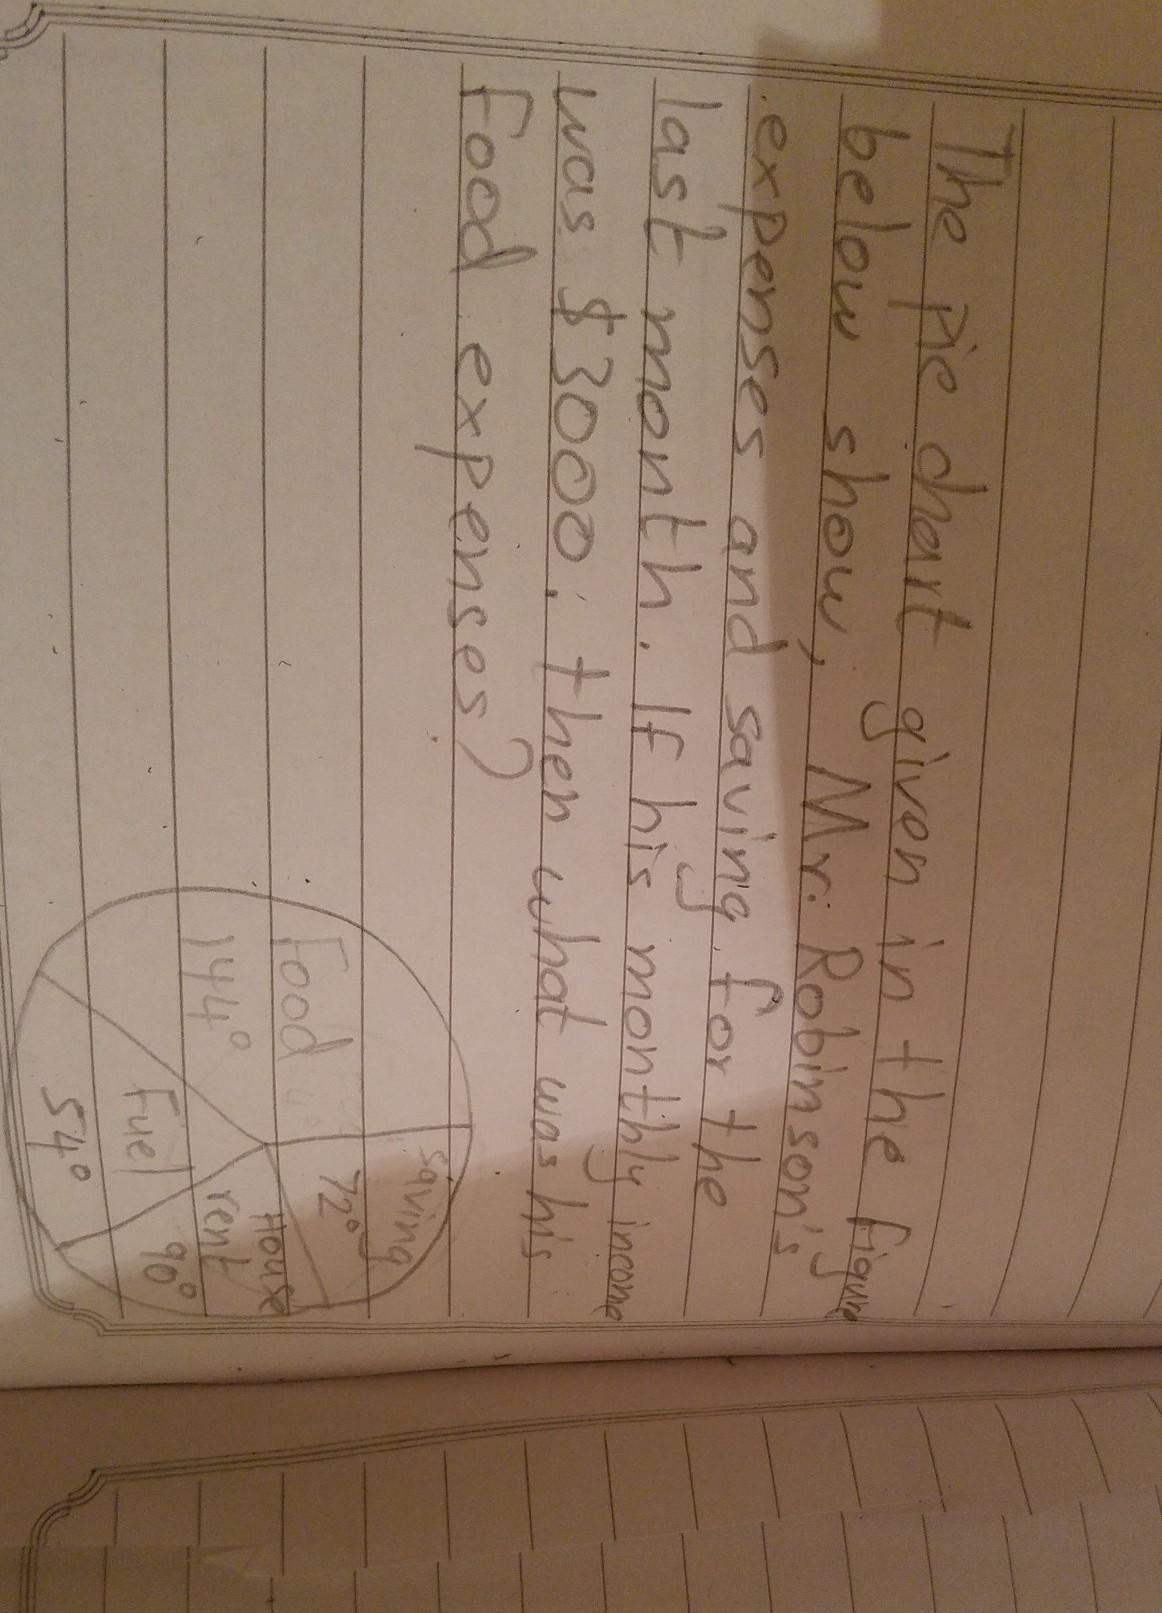 The pie chart given in the figure
below show, Mr. Robinson's
expenses and saving for the
last month. If his monthly income
was $3000. then what was his
Food expenses?
saving
72°
Food
144°
House
rent
90°
Fuel
54°